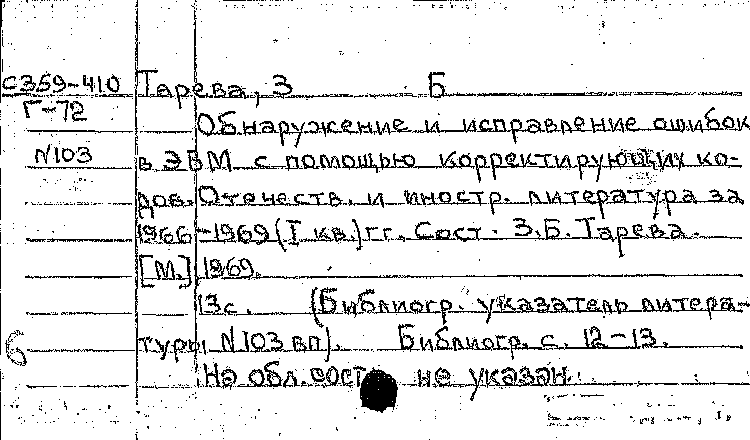 С359-410 Тарева, З Б
Г-72
Обнаружение и исправление ошибок
N103 в ЭВМ с помощью корректирующих ко-
дов. Отечеств. и иностр. литература за
1966-1969 (I кв.) гг. Сост. З.Б. Тарева.
[М.], 1969.
13с. (Библиогр. указатель литера-
6 туры N103 вп). Библиогр. с. 12-13.
На обл. сост. не указан.